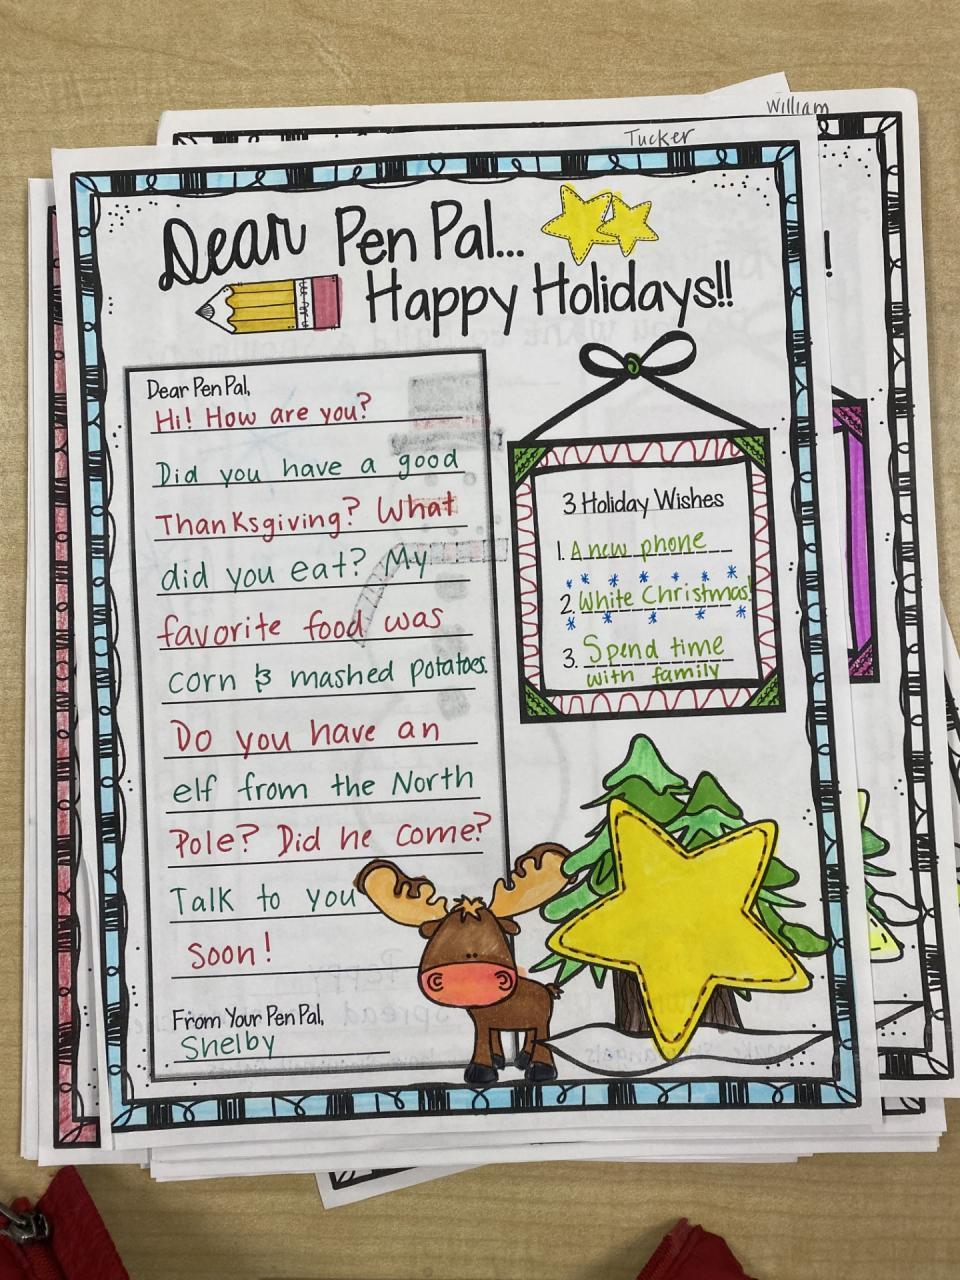 William
Tucker
Dear Pen Pal...
Happy Holidays!!
!
Dear Pen Pal,
Hi! How are you?
Did you have a good
Thanksgiving? What
did you eat? My
favorite food was
corn & mashed potatoes.
Do you have an
elf from the North
Pole? Did he come?
Talk to you
soon!
From Your Pen Pal,
Shelby
3 Holiday Wishes
1. A new phone
2. White Christmas!
3. Spend time
with family